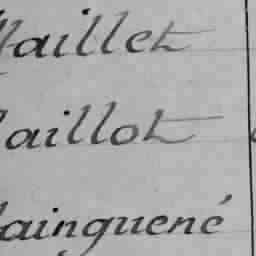 aillet
aillot
ainguené